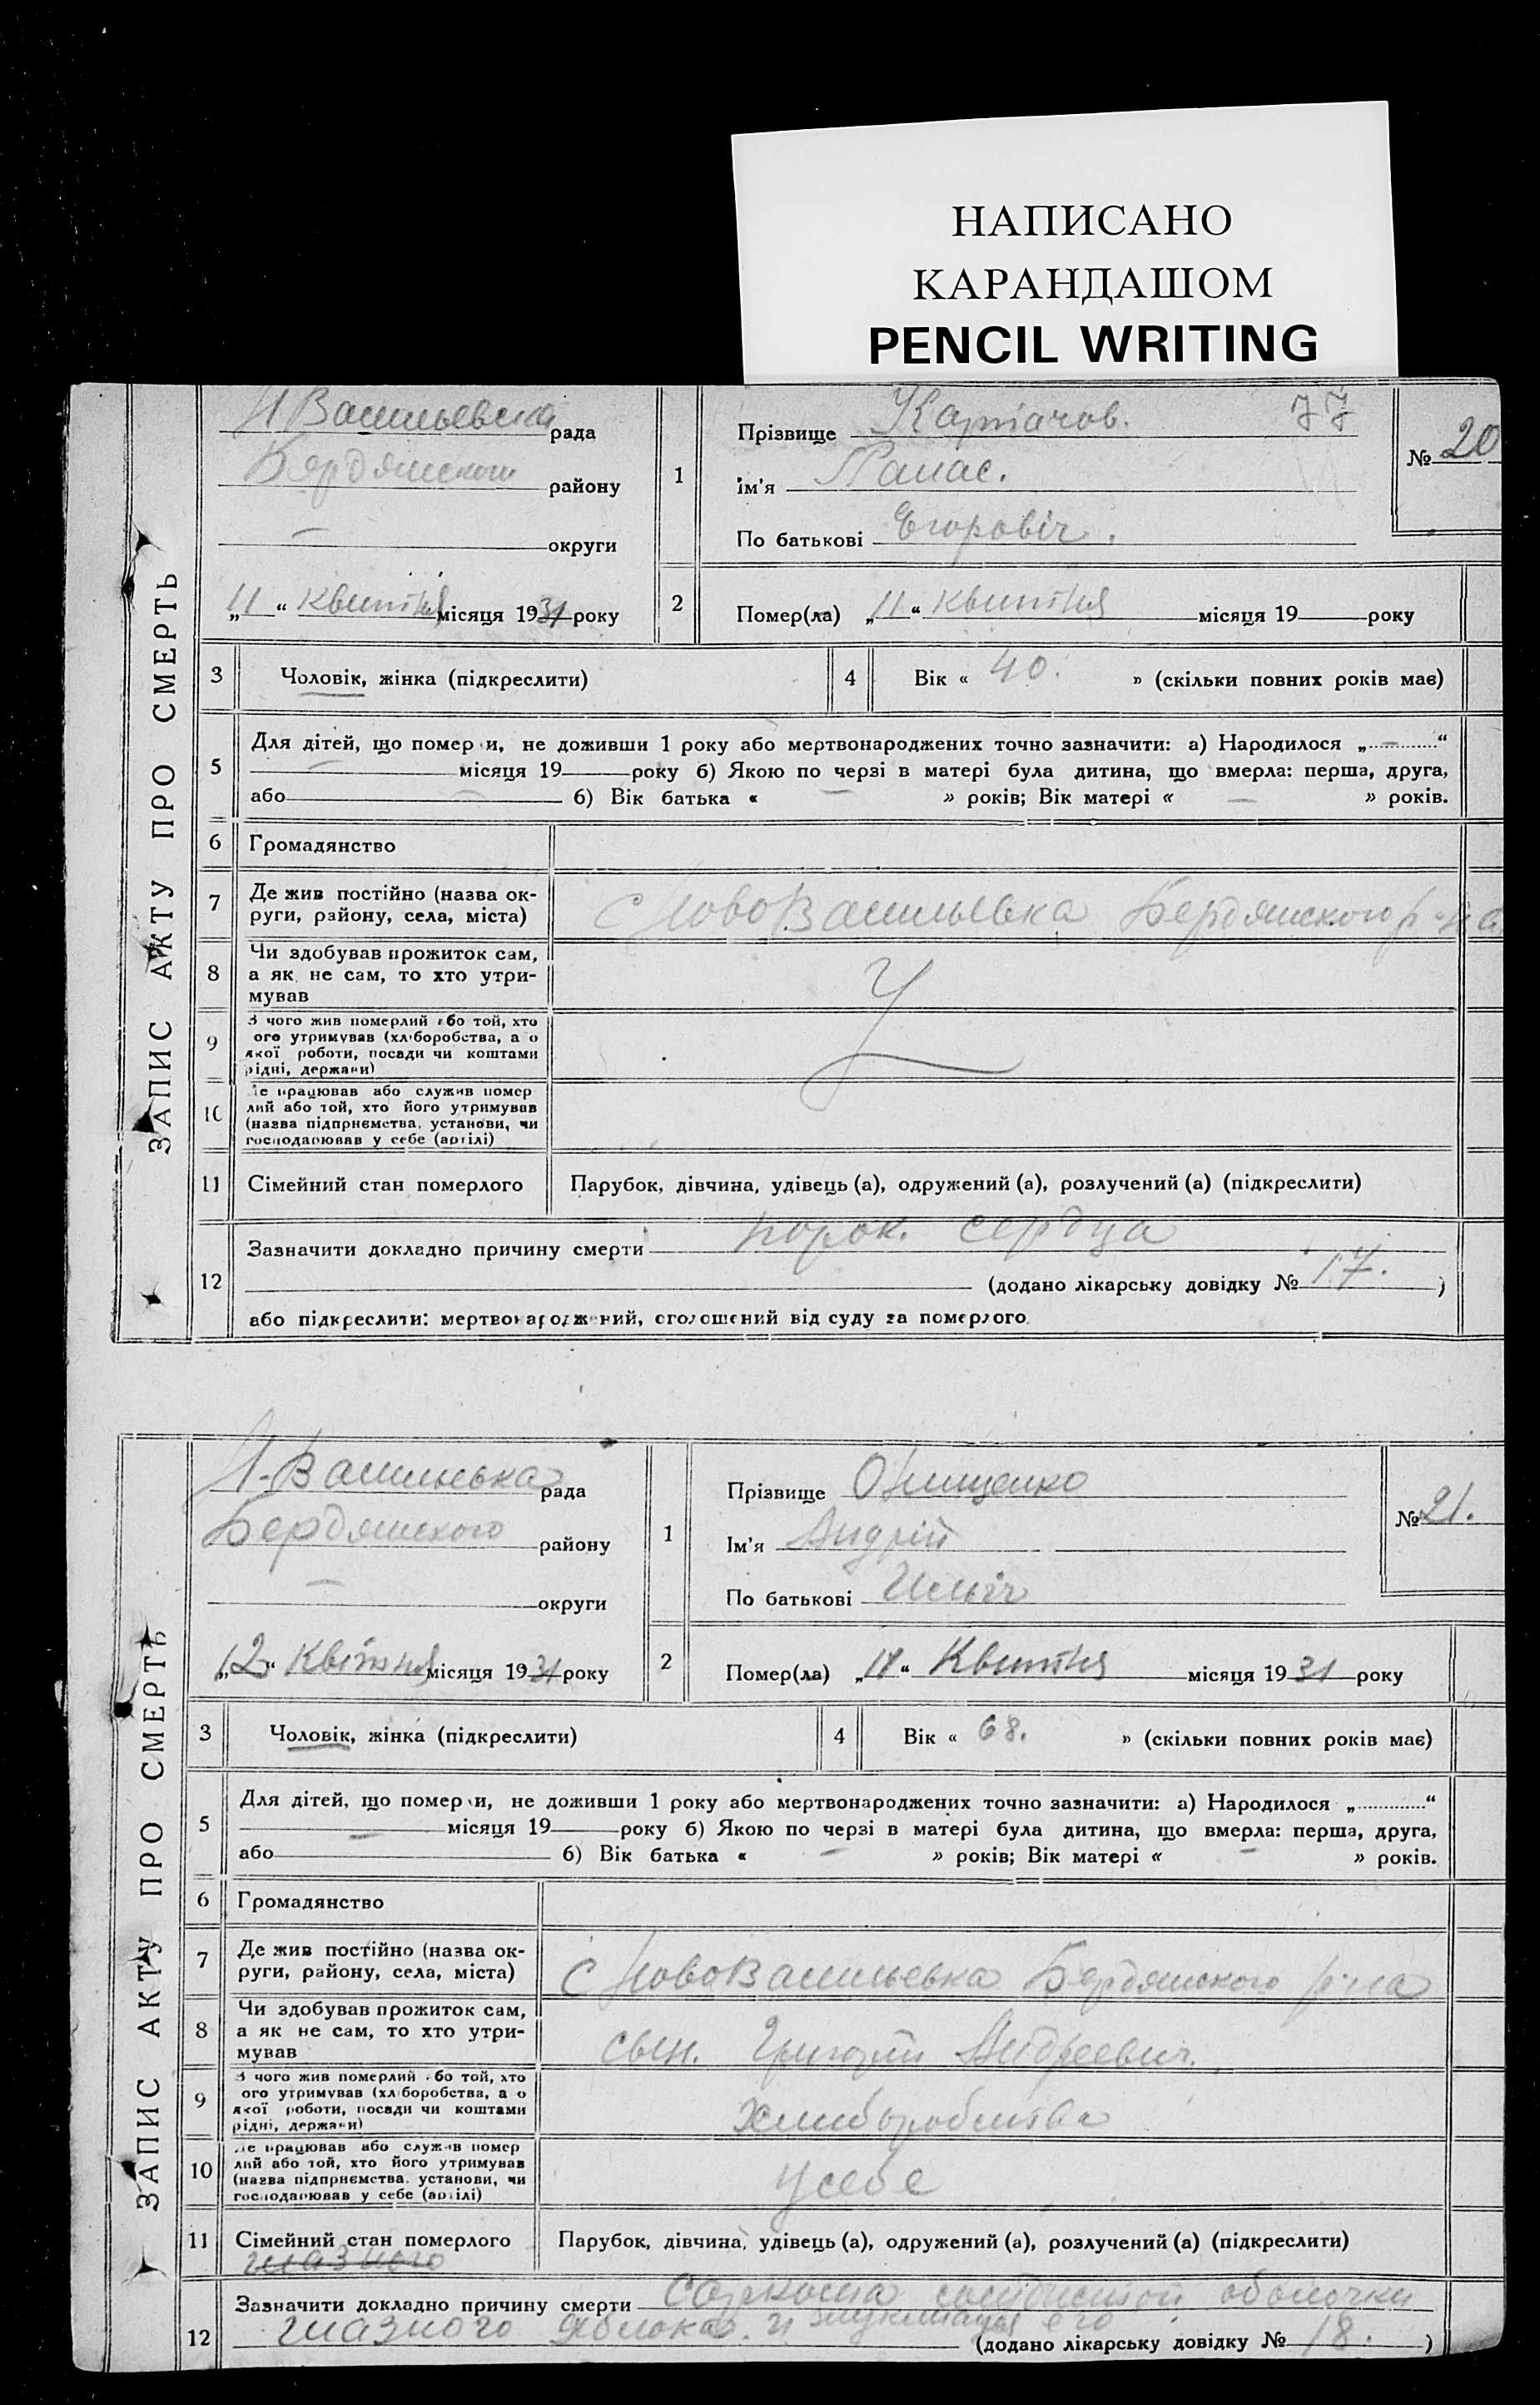 НАПИСАНО
КАРАНДАШОМ
PENCIL WRITING
ЗАПИС АКТУ ПРО СМЕРТЬ
Н Васильевка рада
Бердянского району
— округи
„11“ Квитня місяця 1931 року
77
№ 20
1 Прізвище Картачов.
Ім'я Панас.
По батькові Єгоровіч.
2 Помер(ла) „11“ Квитня місяця 19 року
3 Чоловік, жінка (підкреслити)
4 Вік « 40. » (скільки повних років має)
5 Для дітей, що померли, не доживши 1 року або мертвонароджених точно зазначити: а) Народилося „ — “
— місяця 19 року б) Якою по черзі в матері була дитина, що вмерла: перша, друга,
або — б) Вік батька « — » років; Вік матері « — » років.
6 Громадянство
7 Де жив постійно (назва ок-
руги, району, села, міста)
с НовоВасильевка Бердянского р-на
8 Чи здобував прожиток сам,
а як не сам, то хто утри-
мував
9 З чого жив померлий або той, хто
його утримував (хліборобства, а о
якої роботи, посади чи коштами
рідні, держави)
10 Де працював або служив помер
лий або той, хто його утримував
(назва підприємства, установи, чи
господарював у себе (артілі)
11 Сімейний стан померлого
Парубок, дівчина, удівець (а), одружений (а), розлучений (а) (підкреслити)
12 Зазначити докладно причину смерти порок. сердца
(додано лікарську довідку № 17. )
або підкреслити: мертвонароджений, оголошений від суду за померлого.
ЗАПИС АКТУ ПРО СМЕРТЬ
Н-Васильевка рада
Бердянского району
— округи
„12“ Квітня місяця 1931 року
№ 21.
1 Прізвище Онищенко
Ім'я Андрій
По батькові Ильіч
2 Помер(ла) „11“ Квитня місяця 1931 року
3 Чоловік, жінка (підкреслити)
4 Вік « 68. » (скільки повних років має)
5 Для дітей, що померли, не доживши 1 року або мертвонароджених точно зазначити: а) Народилося „ “
— місяця 19 року б) Якою по черзі в матері була дитина, що вмерла: перша, друга,
або б) Вік батька « — » років; Вік матері « — » років.
6 Громадянство
7 Де жив постійно (назва ок-
руги, району, села, міста)
с НовоВасильевка Бердянского р-на
8 Чи здобував прожиток сам,
а як не сам, то хто утри-
мував
сын. Григорій Андреевич.
9 З чого жив померлий або той, хто
його утримував (хліборобства, а о
якої роботи, посади чи коштами
рідні, держави)
хлиборобства
10 Де працював або служив помер
лий або той, хто його утримував
(назва підприємства, установи, чи
господарював у себе (артілі)
у себе
11 Сімейний стан померлого
Парубок, дівчина, удівець (а), одружений (а), розлучений (а) (підкреслити)
глазного
12 Зазначити докладно причину смерти Саркома оболочки
глазного яблока. и его
(додано лікарську довідку № 18. )